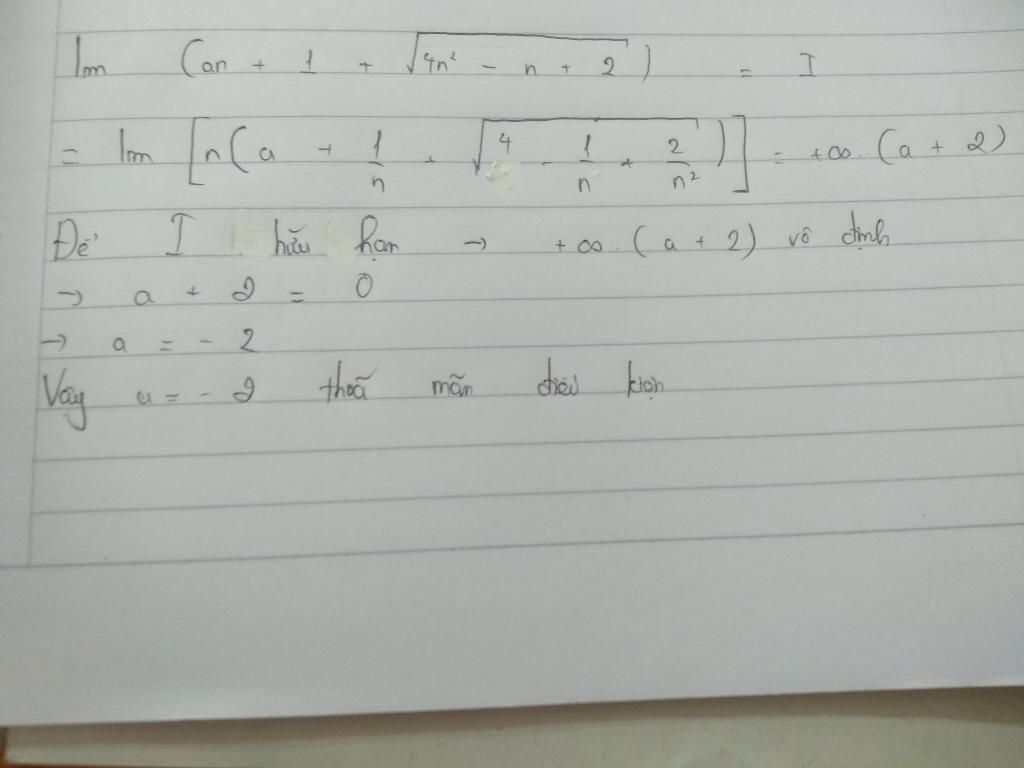 lim (an + 1 + √(4n² - n + 2)) = I
= lim [n(a + 1/n + √(4 - 1/n + 2/n²))] = +∞. (a + 2)
Để I hữu hạn → +∞. (a + 2) vô định
→ a + 2 = 0
→ a = - 2
Vậy a = - 2 thoã mãn điều kiện